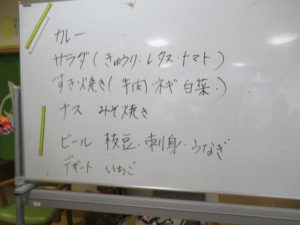 カレー
サラダ(きゅうり・レタス・トマト)
すき焼き(牛肉 ネギ 白菜・)
ナス みそ焼き
ビール 枝豆・刺身・うなぎ
デザート いちご